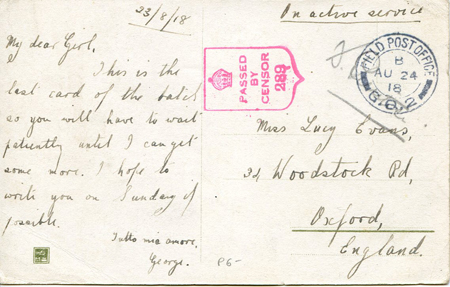 23/8/18
My dear Girl,
This is the
last card of the batch
so you will have to wait
patiently until I can get
some more. I hope to
write you on Sunday if
possible.
Tutto mio amore.
George.
On active service
PASSED
BY
CENSOR
289
FIELD POST OFFICE
B
AU 24
18
G.6.2
Miss Lucy Evans,
34 Woodstock Rd,
Oxford,
England.
P6-